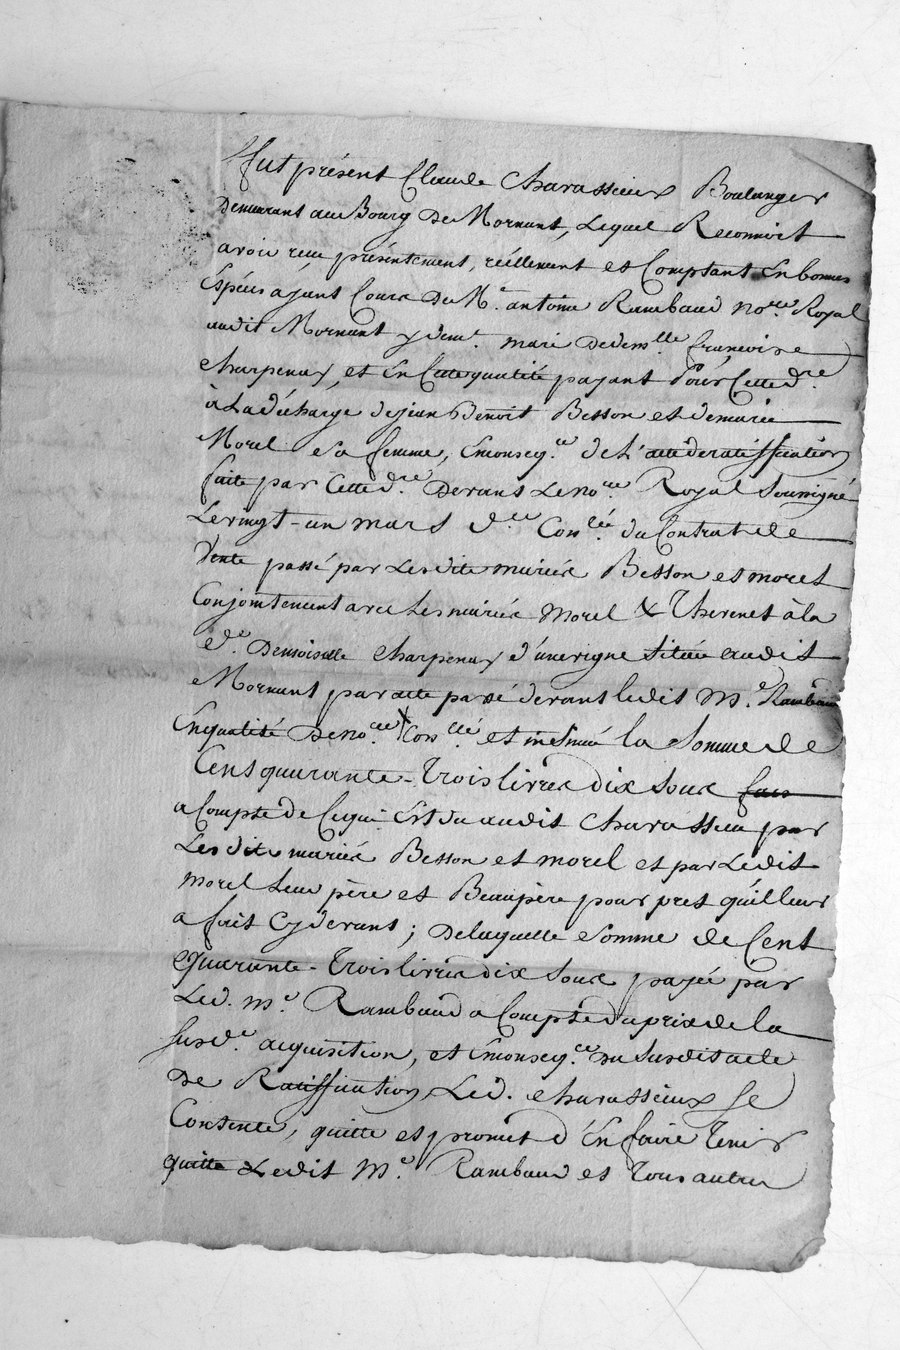 fut présent Claude Charassieux Boulanger
Demeurant au Bourg De Mornant, Lequel Reconnoit
avoir reçu présentement, réellement et Comptant En bonnes
Espéces ayant Cours De Me. antoine Rambaud nore. Royal
audit Mornant y demt. mari De demlle. francoise
Charpenay, et En Cette qualité payant Pour Cette dre.
à La décharge de jean Benoit Besson et de marie
Morel Sa femme, En consequce. de L'acte de ratiffication
faite par Cette dre. Devant Le nore. Royal Soussigné
Le vingt-un mars dr. Conlée. du Contrat de
Vente passé par Lesdits mariés Besson et morel
Conjointement avec Les mariés Morel & Therenet à la
de. Demoiselle Charpenay d'une vigne située audit
Mornant par acte passé devant ledit Me. Rambaud
En qualité De nore. Conlé. et insinué la Somme de
Cent quarante-trois livres dix Sous
a Compte de Ce qui Est du audit Charassieu par
Lesdits mariés Besson et morel et par Ledit
morel Leur père et Beaupère pour pret qu'il leur
a fait Cy devant ; De laquelle Somme de Cent
quarante-trois livres dix Sous payée par
Led. Me. Rambaud a Compte du prix de la
Susde. acquisition, et En conseqce. du Susdit acte
De Ratiffication Led. Charassieux Se
Contente, quitte et promet d'En faire tenir
quitte Ledit Me. Rambaud et Tous autres